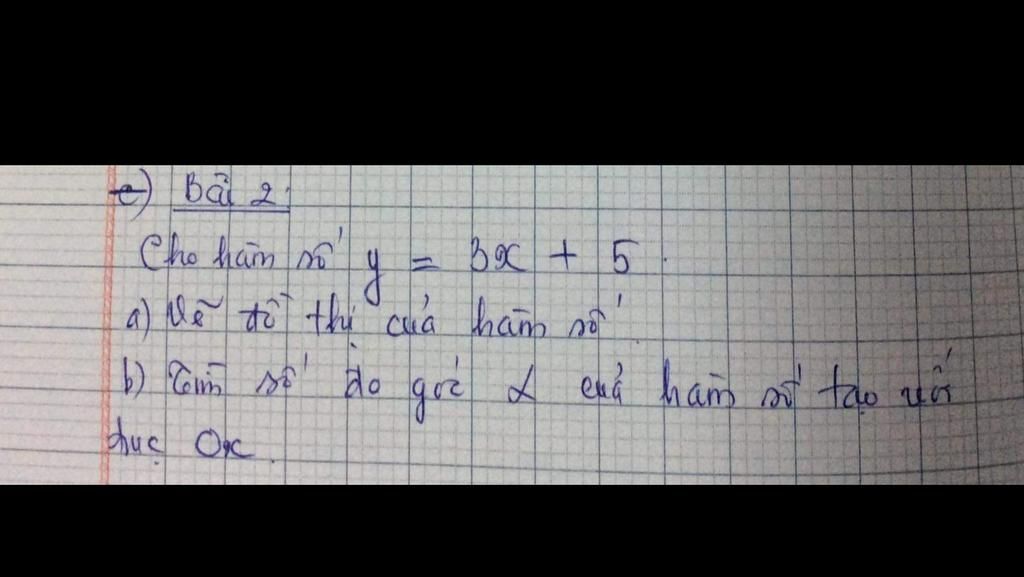 c) Bài 2:
Cho hàm số y = 3x + 5.
a) Vẽ đồ thị của hàm số.
b) Tìm số đo góc α của hàm số tạo với
trục Ox.